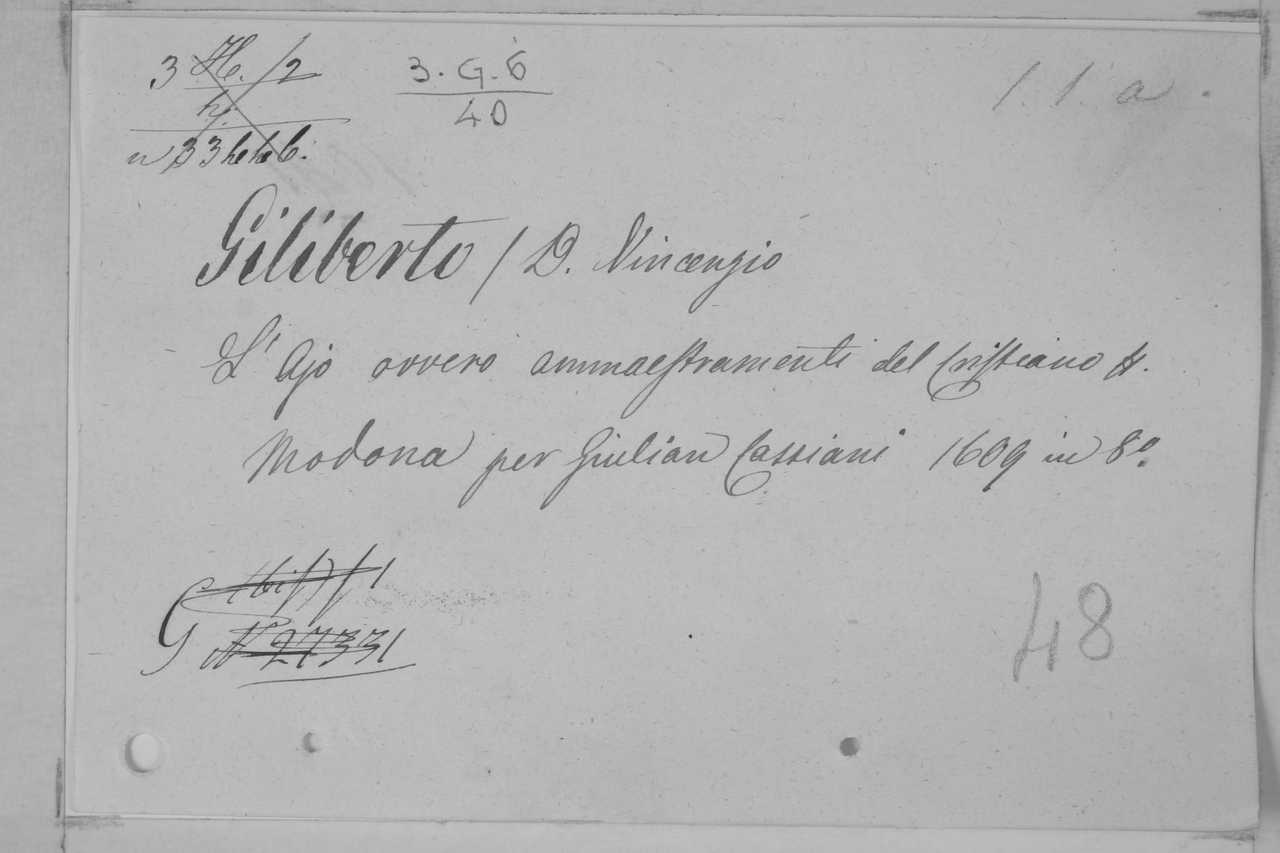 3 H./2
3. G. 6
40
1. 1. a.
Giliberto / D. Vincenzio
L' Ajo ovvero ammaestramenti del Cristiano &.
Modona per Giulian Cassiani 1609 in 8º.
G
N 27331
48